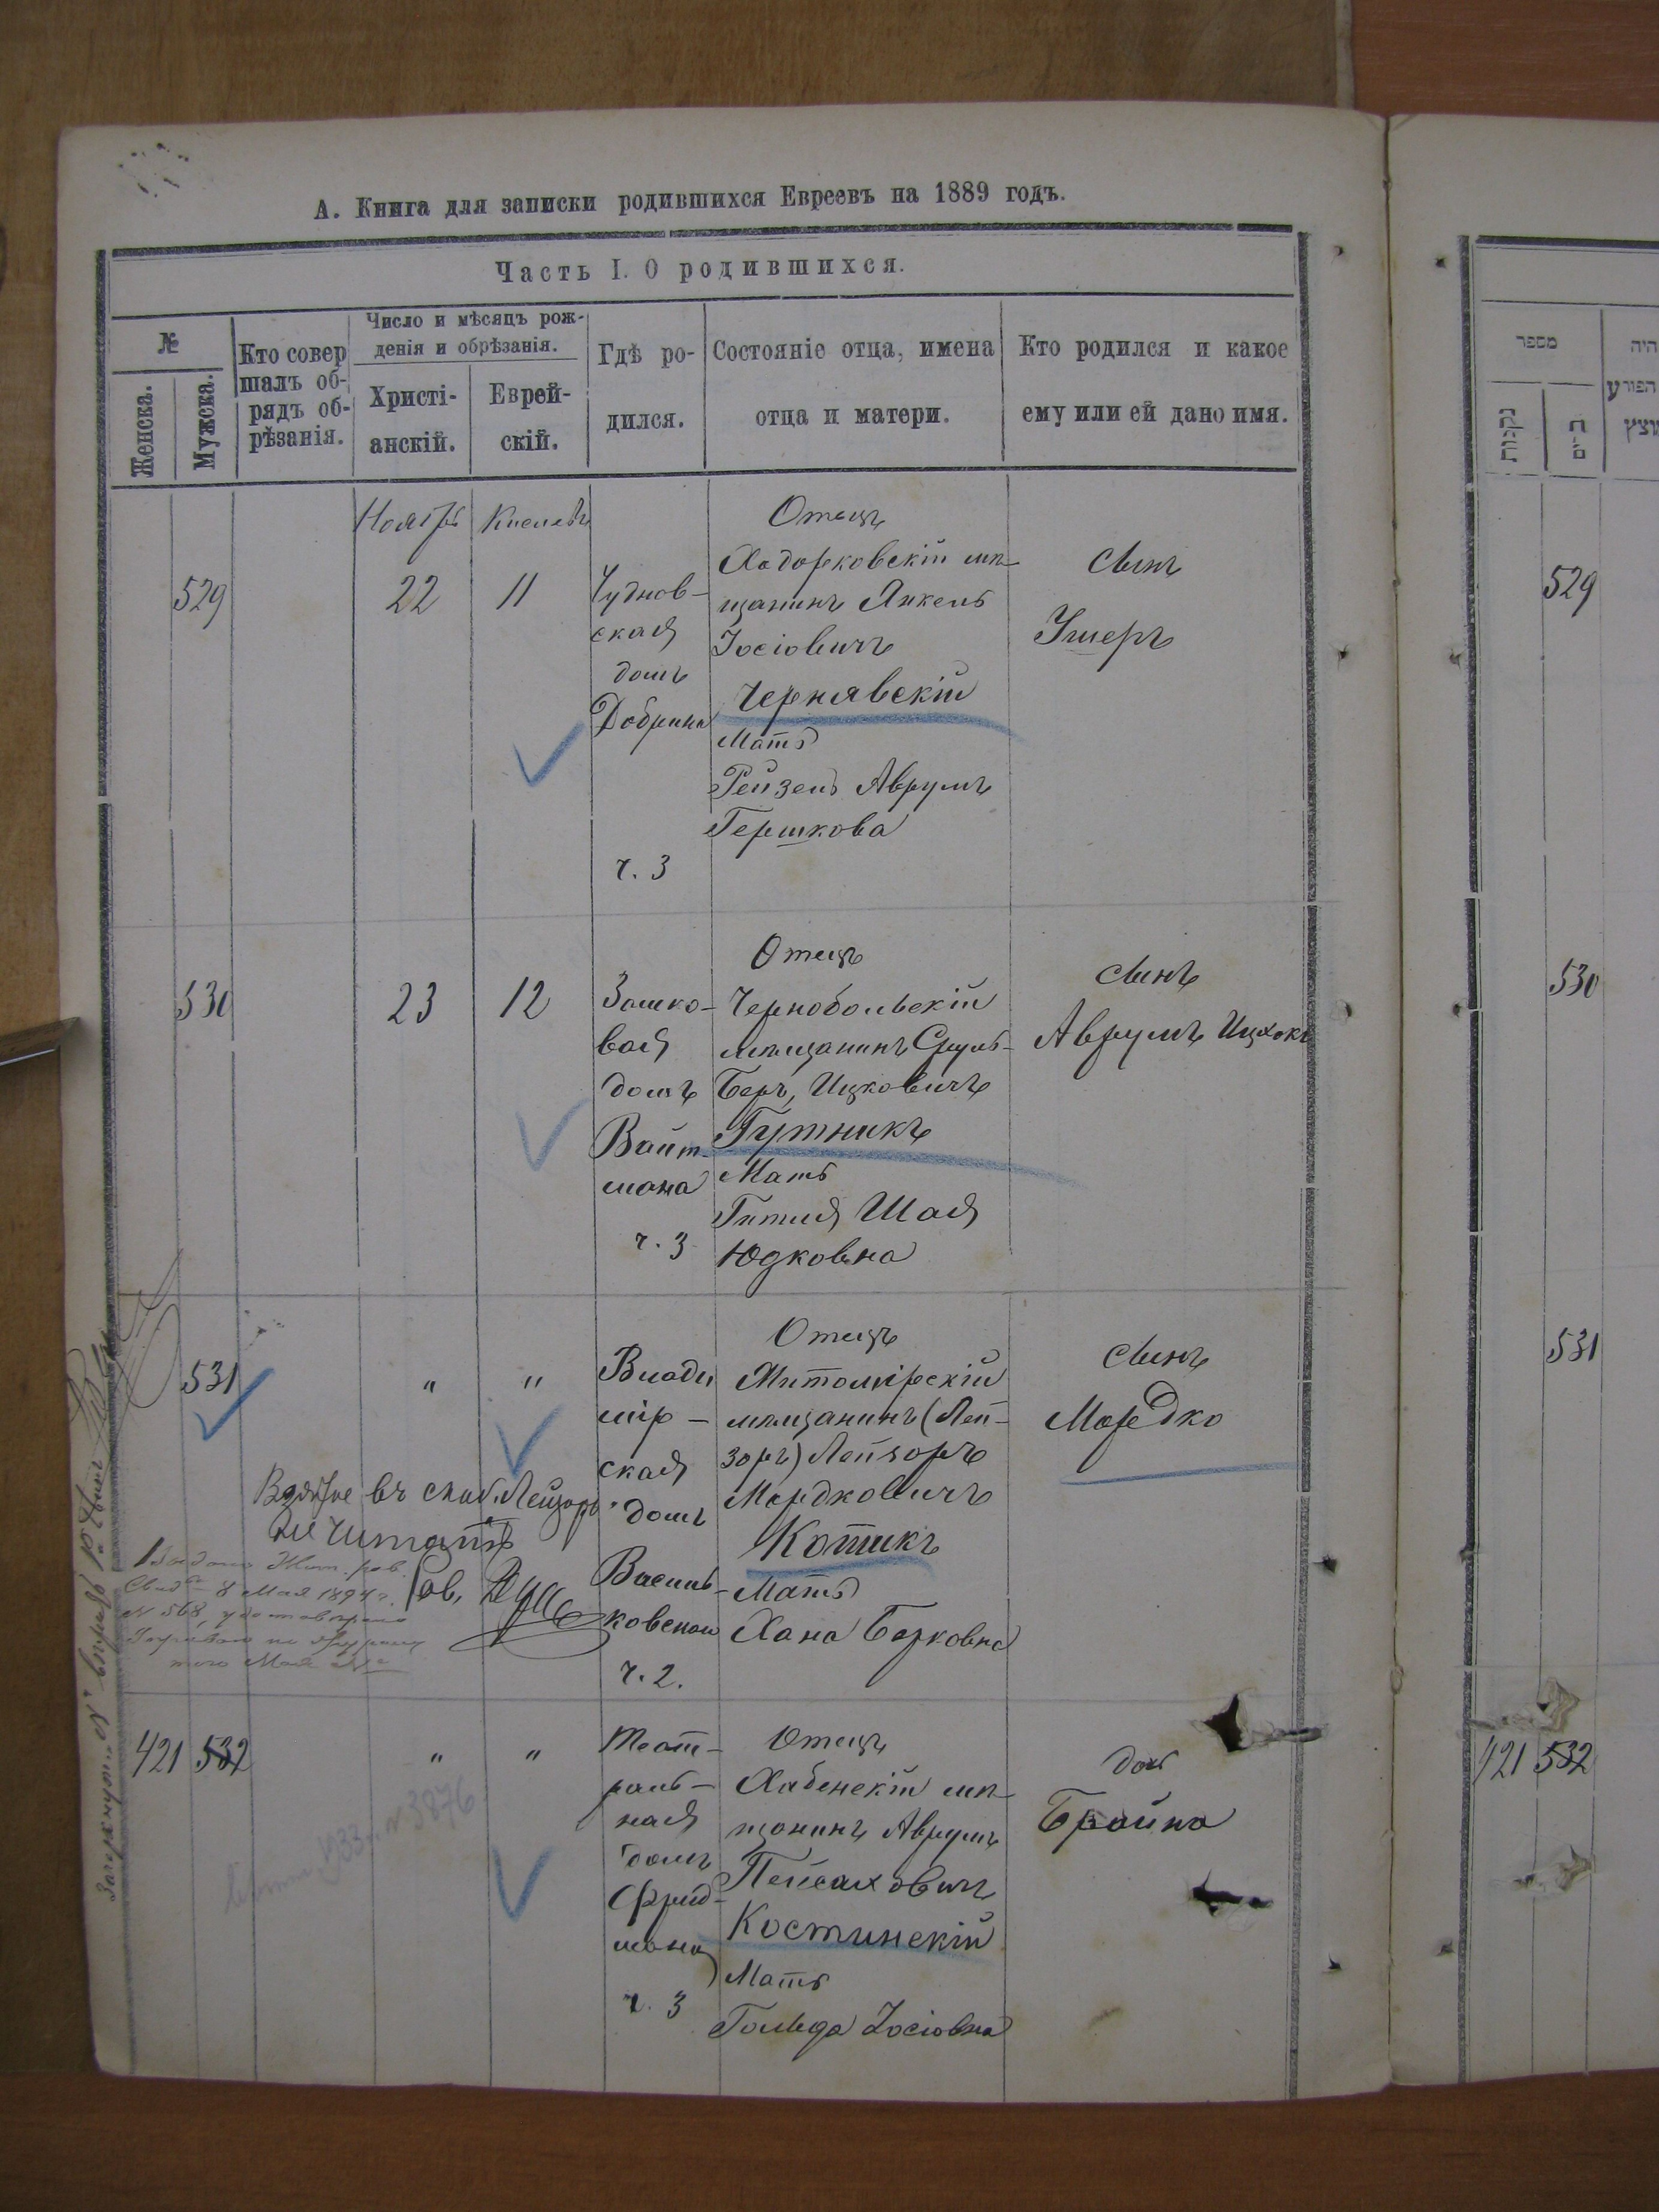 А. Книга для записки родившихся Евреевъ на 1889 годъ.
Часть I. О родившихся.
№
Женска.
Мужска.
Кто совер
шалъ об-
рядъ об-
рѣзанія.
Число и мѣсяцъ рож-
денія и обрѣзанія.
Христі-
анскій.
Еврей-
скій.
Гдѣ ро-
дился.
Состояніе отца, имена
отца и матери.
Кто родился и какое
ему или ей дано имя.
529
Ноябрь
22
Кислевъ
11
Чуднов-
ская
домъ
Добрина
ч. 3
Отецъ
Ходорковскій мѣ-
щанинъ Янкель
Іосіовичъ
Чернявскій
Мать
Рейзель Аврумъ
Гершкова
Сынъ
Ушеръ
530
23
12
вая
домъ
Войт-
мана
ч. 3
Отецъ
Чернобольскій
мѣщанинъ Сруль-
Беръ, Ицковичъ
Гутникъ
Мать
Гитля Шая
Юдковна
Сынъ
Аврумъ Ицхокъ
531
"
"
Влади
мір-
ская
домъ
Василь-
ковской
ч. 2.
Отецъ
Житомірскій
мѣщанинъ (Лей-
зоръ) Лейзоръ
Мордковичъ
Котикъ
Мать
Хана Берковна
Сынъ
Мордко
въ скоб. Лейзоръ
не читать
Рав.
8 Мая 1894 г.
№ 568,
421
532
"
"
Театр-
раль-
ная
домъ
Фрид-
мана
ч. 3
Отецъ
Хабенскій мѣ-
щанинъ Аврумъ
Пейсаховичъ
Костинскій
Мать
Гольда Іосіовна
дочь
Брайна
№ 3876
מספר
נקבות
היה
הפורע
529
530
531
421
532